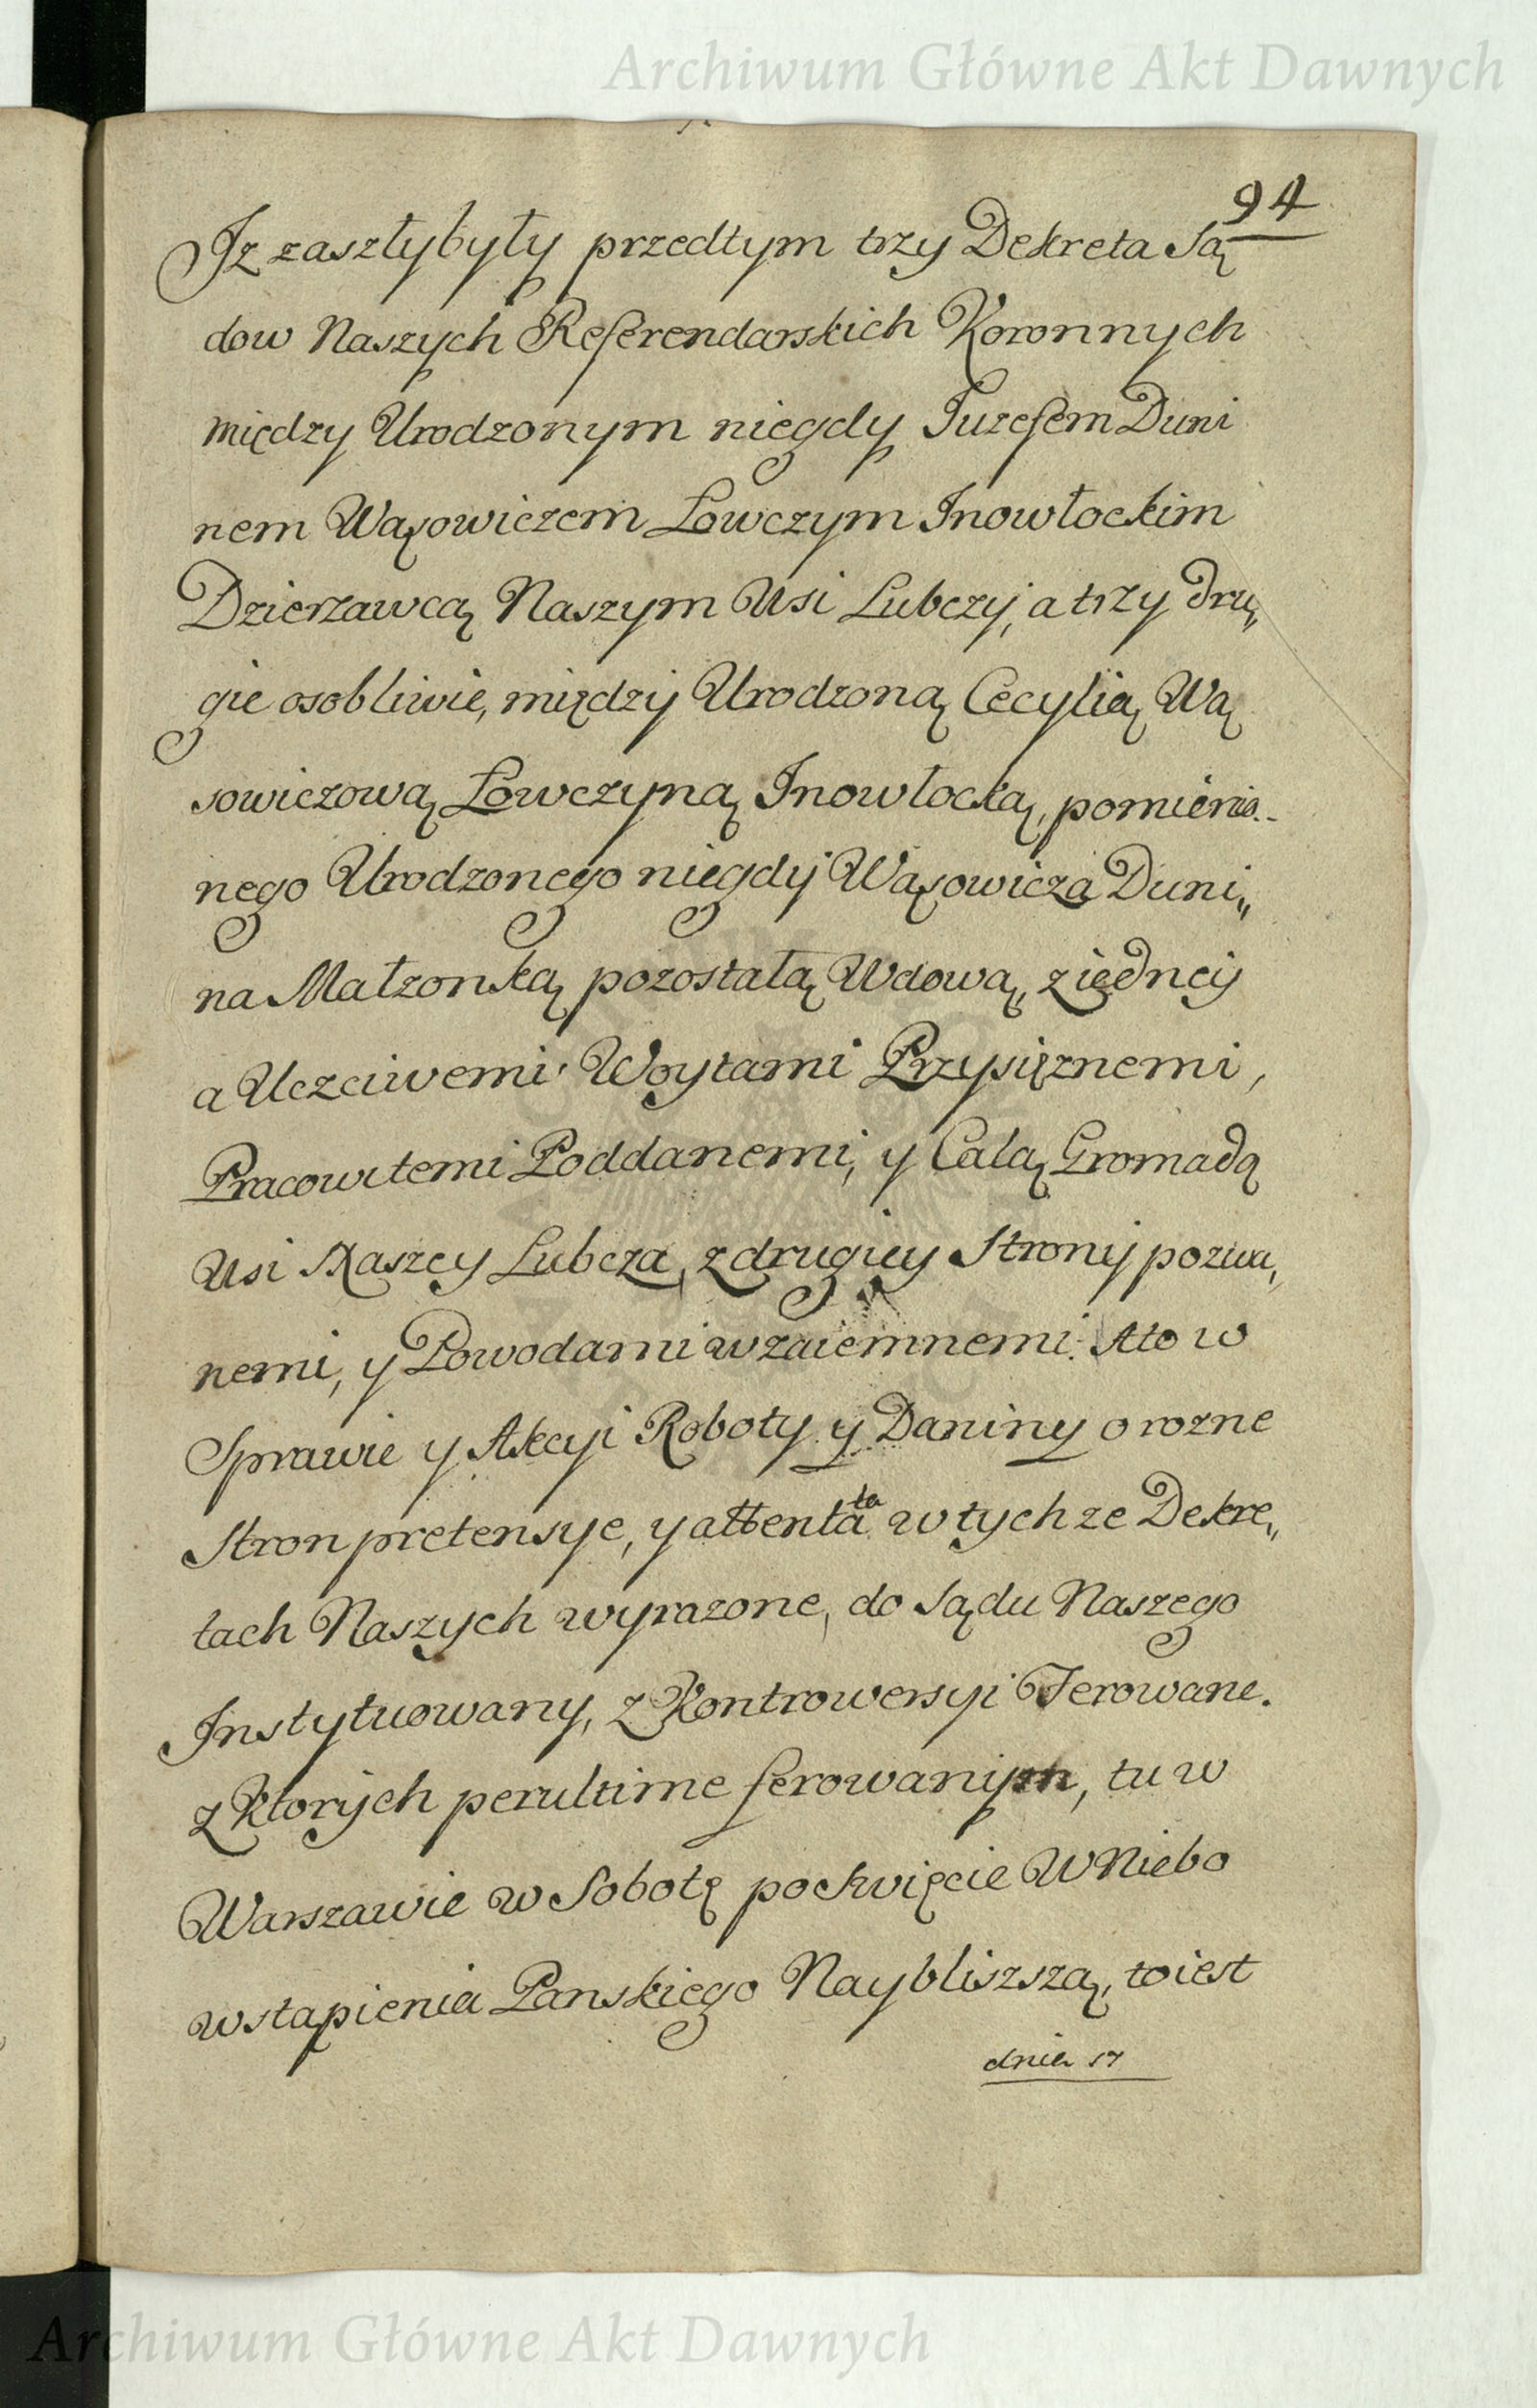 Archiwum Główne Akt Dawnych
94
Iz zaszły były przedtym trzy Dekreta Są
dow Naszych Referendarskich Koronnych
między Urodzonym niegdy Juzefem Duni
nem Wąsowiczem Łowczym Inowłockim
Dzierzawcą Naszym Wsi Lubczy, a trzy dru„
gie osobliwie, między Urodzoną Cecylią Wą
sowiczową Łowczyną Inowłocką, pomienio-
nego Urodzonego niegdy Wąsowicza Duni„
na Małzonką pozostałą Wdową, z iedney
a Uczciwemi Woytami Przysięznemi,
Pracowitemi Poddanemi, y Całą Gromadą
Wsi Naszey Lubcza, z drugiey Strony pozwa„
nemi, y Powodami wzaiemnemi. A to w
Sprawie y Akcyi Roboty y Daniny o rozne
Stron pretensye, y attentata w tychze Dekre„
tach Naszych wyrazone, do Sądu Naszego
Instytuowany, z Kontrowersyi Ferowane.
z Ktorych per ultime ferowanym, tu w
Warszawie w Sobotę po Swięcie W Niebo
wstąpienia Panskiego Naybliszszą, to iest
dnia 17
Archiwum Główne Akt Dawnych